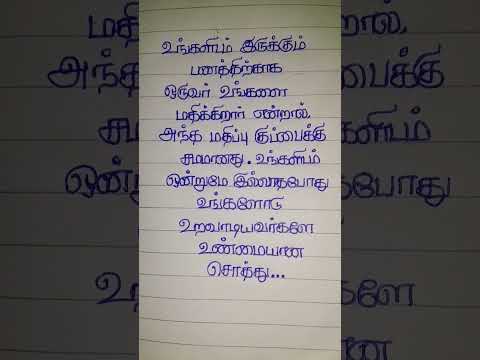 உங்களிடம் இருக்கும்
பணத்திற்காக
ஒருவர் உங்களை
மதிக்கிறார் என்றால்,
அந்த மதிப்பு குப்பைக்கு
சமமானது. உங்களிடம்
ஒன்றுமே இல்லாதபோது
உங்களோடு
உறவாடியவர்களே
உண்மையான
சொத்து...